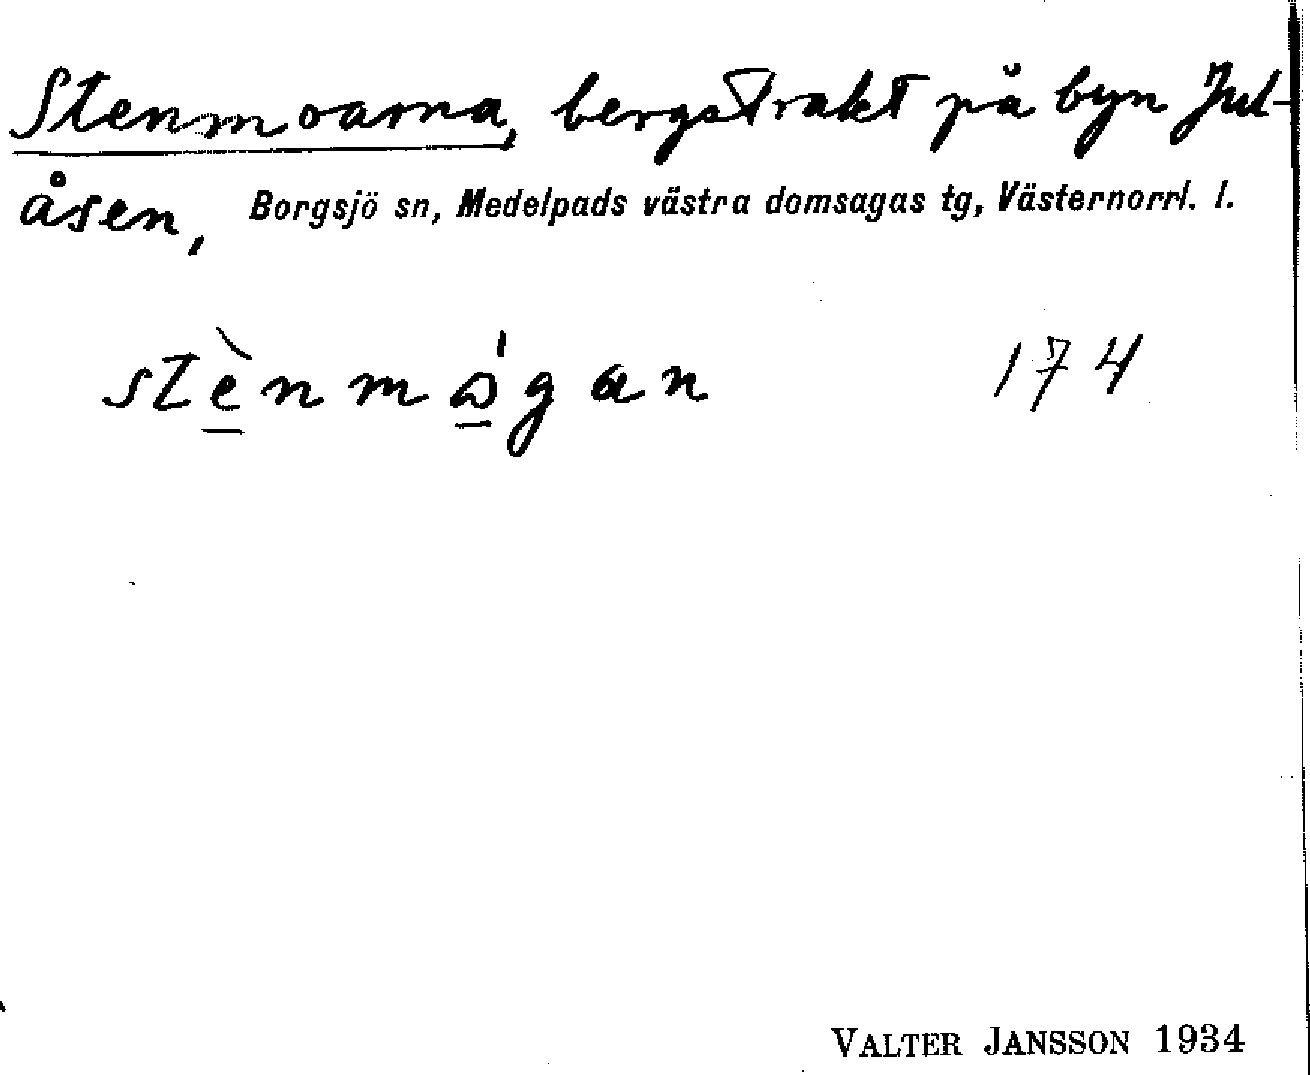 Stenmoarna, bergstrakt på byn Jul-
åsen, Borgsjö sn, Medelpads västra domsagas tg, Västernorrl. l.
174
VALTER JANSSON 1934